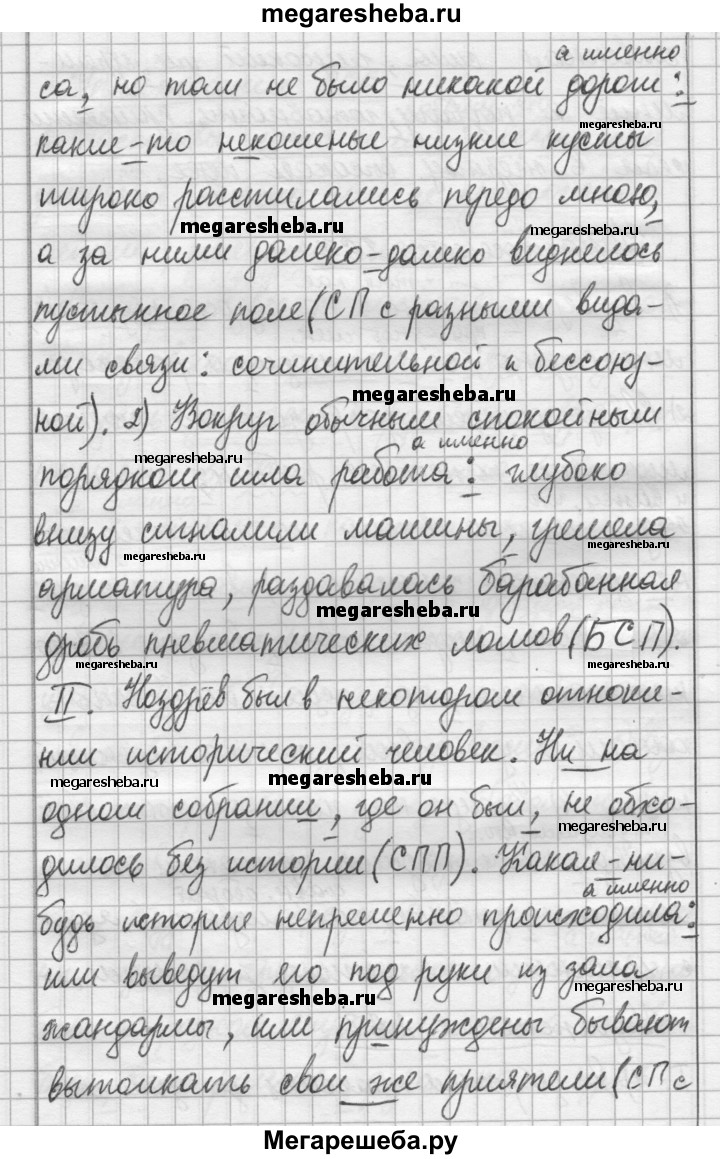 megaresheba.ru
а именно
са, но там не было никакой дороги:
megaresheba.ru
какие-то некошеные низкие кусты
широко расстилались передо мною,
megaresheba.ru
megaresheba.ru
а за ними далеко-далеко виднелось
пустынное поле (СП с разными вида-
ми связи: сочинительной и бессоюз-
megaresheba.ru
ной). 2) Вокруг обычным спокойным
а именно
megaresheba.ru
порядком шла работа: глубоко
внизу сигналили машины, гремела
megaresheba.ru
megaresheba.ru
арматура, раздавалась барабанная
megaresheba.ru
дробь пневматических ломов (БСП).
megaresheba.ru
megaresheba.ru
II. Ноздрёв был в некотором отноше-
нии исторический человек. Ни на
megaresheba.ru
megaresheba.ru
одном собрании, где он был, не обхо-
megaresheba.ru
дилось без истории (СПП). Какая-ни-
а именно
будь история непременно происходила:
или выведут его под руки из зала
megaresheba.ru
megaresheba.ru
жандармы, или принуждены бывают
вытолкать свои же приятели (СП с
Мегарешеба.ру